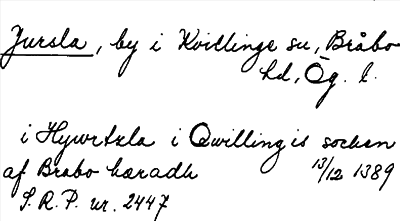 Jursla, by i Kvillinge sn, Bråbo
hd, Ög. l.
i Hywrtzla i Qwillingis sochen
af Brabo hæradh 13/12 1389
S. R. P. nr. 2447